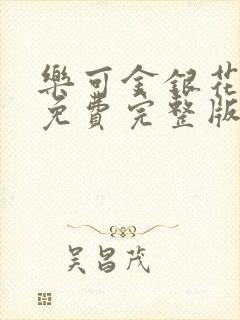 樂可金銀花
免費完整版
吳昌茂